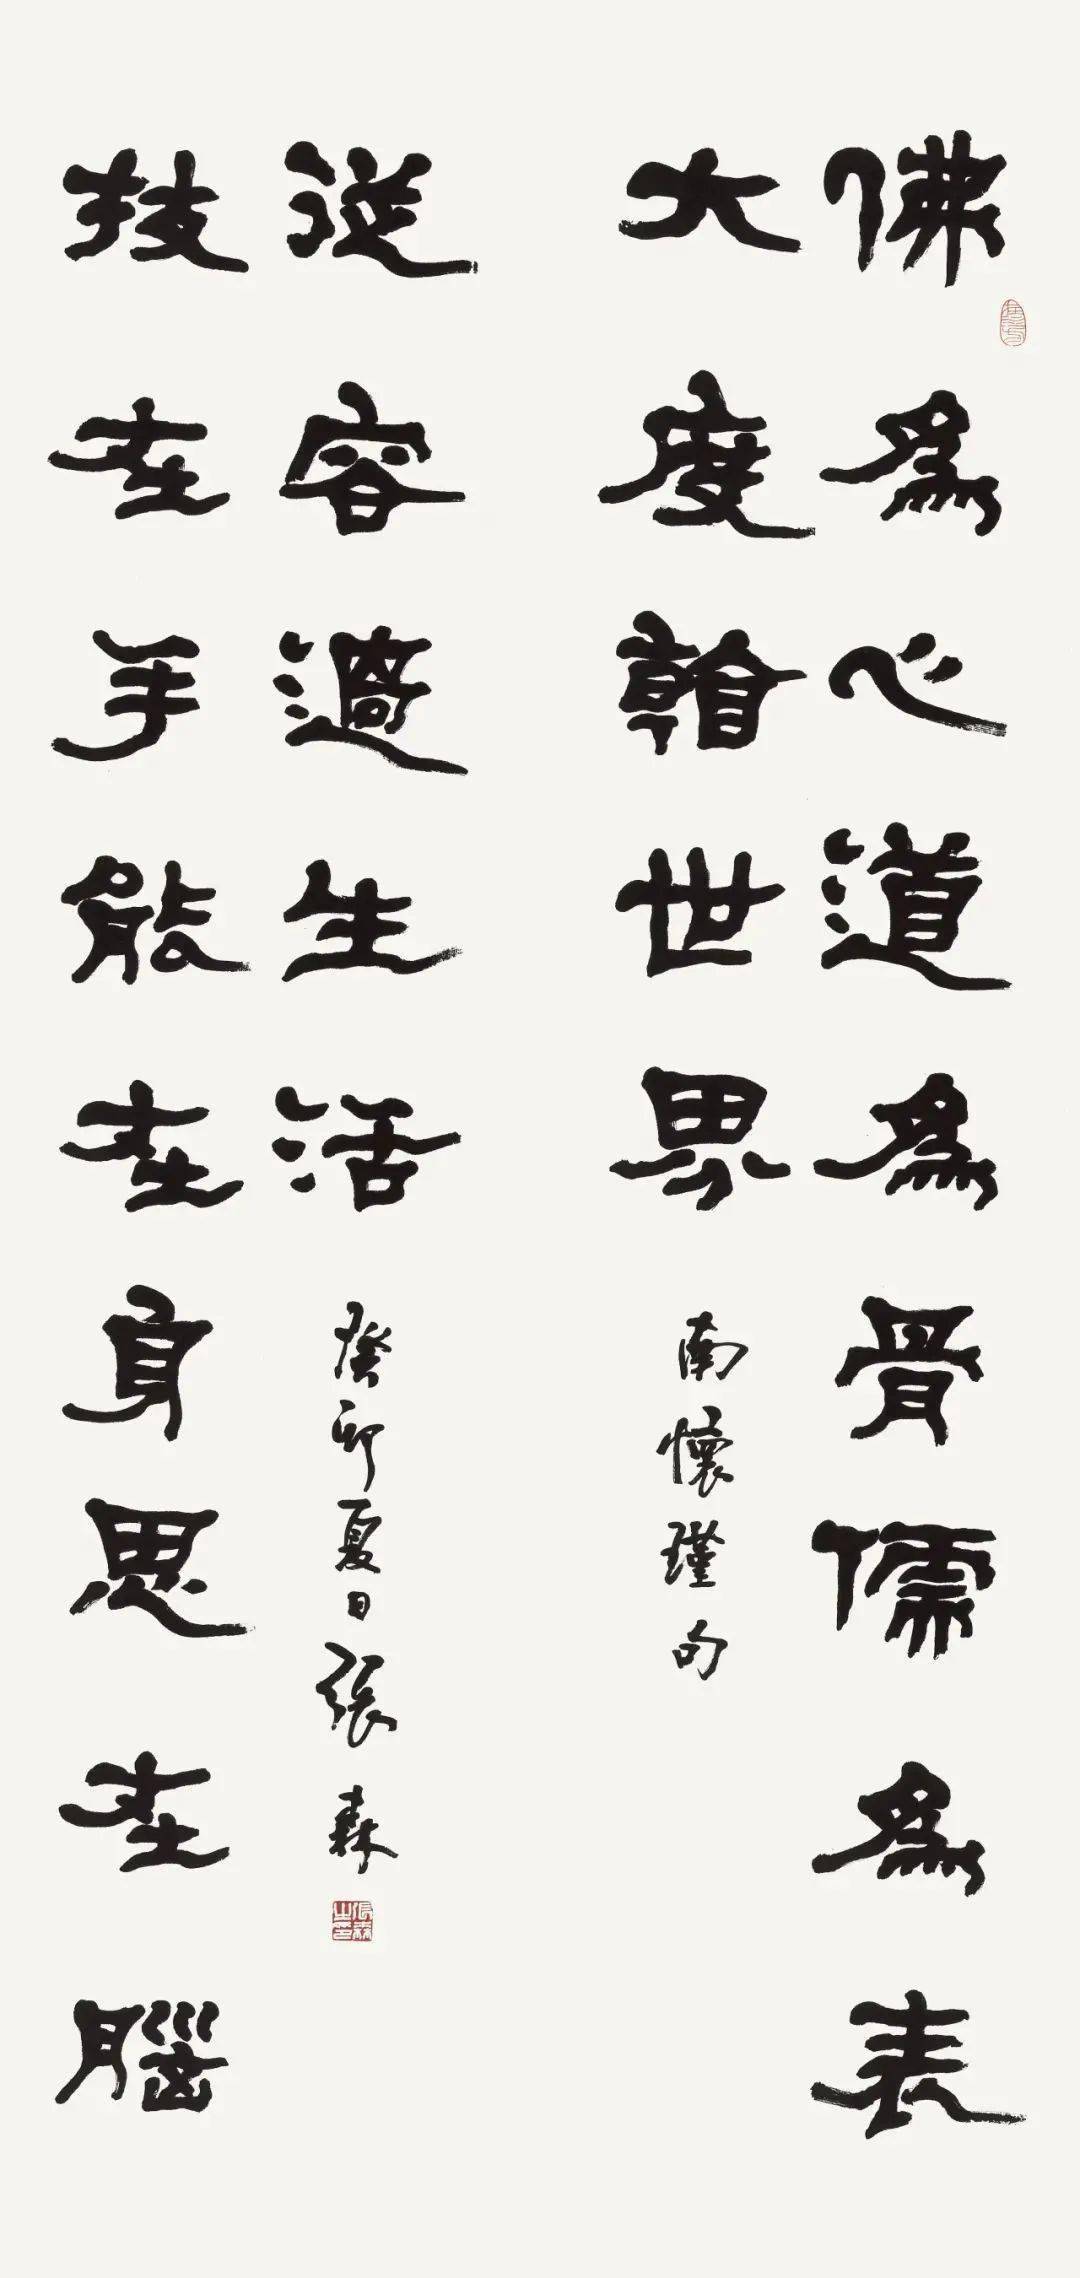 佛為心道為骨儒為表
大度看世界
南懷瑾句
技在手能在身思在腦
從容過生活
癸卯夏日張森
張森之印